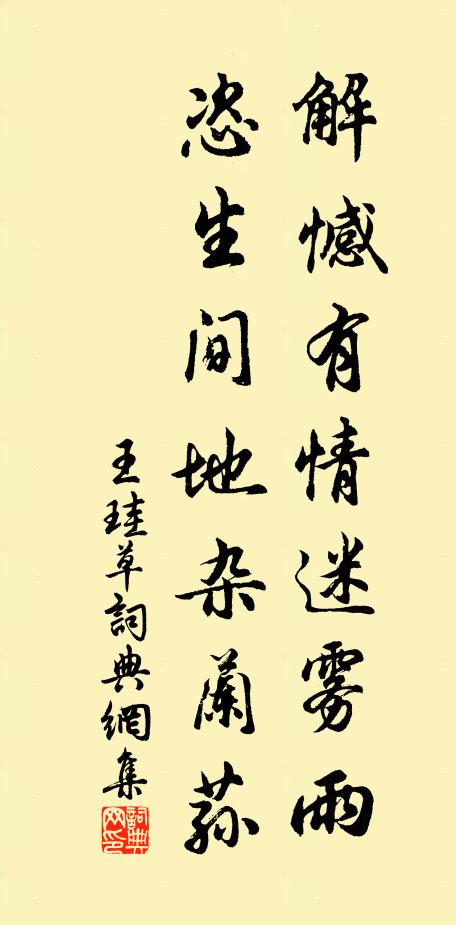 解憾有情迷雾雨
恣生间地杂兰荪
王珪草詞典網集
詞典網印